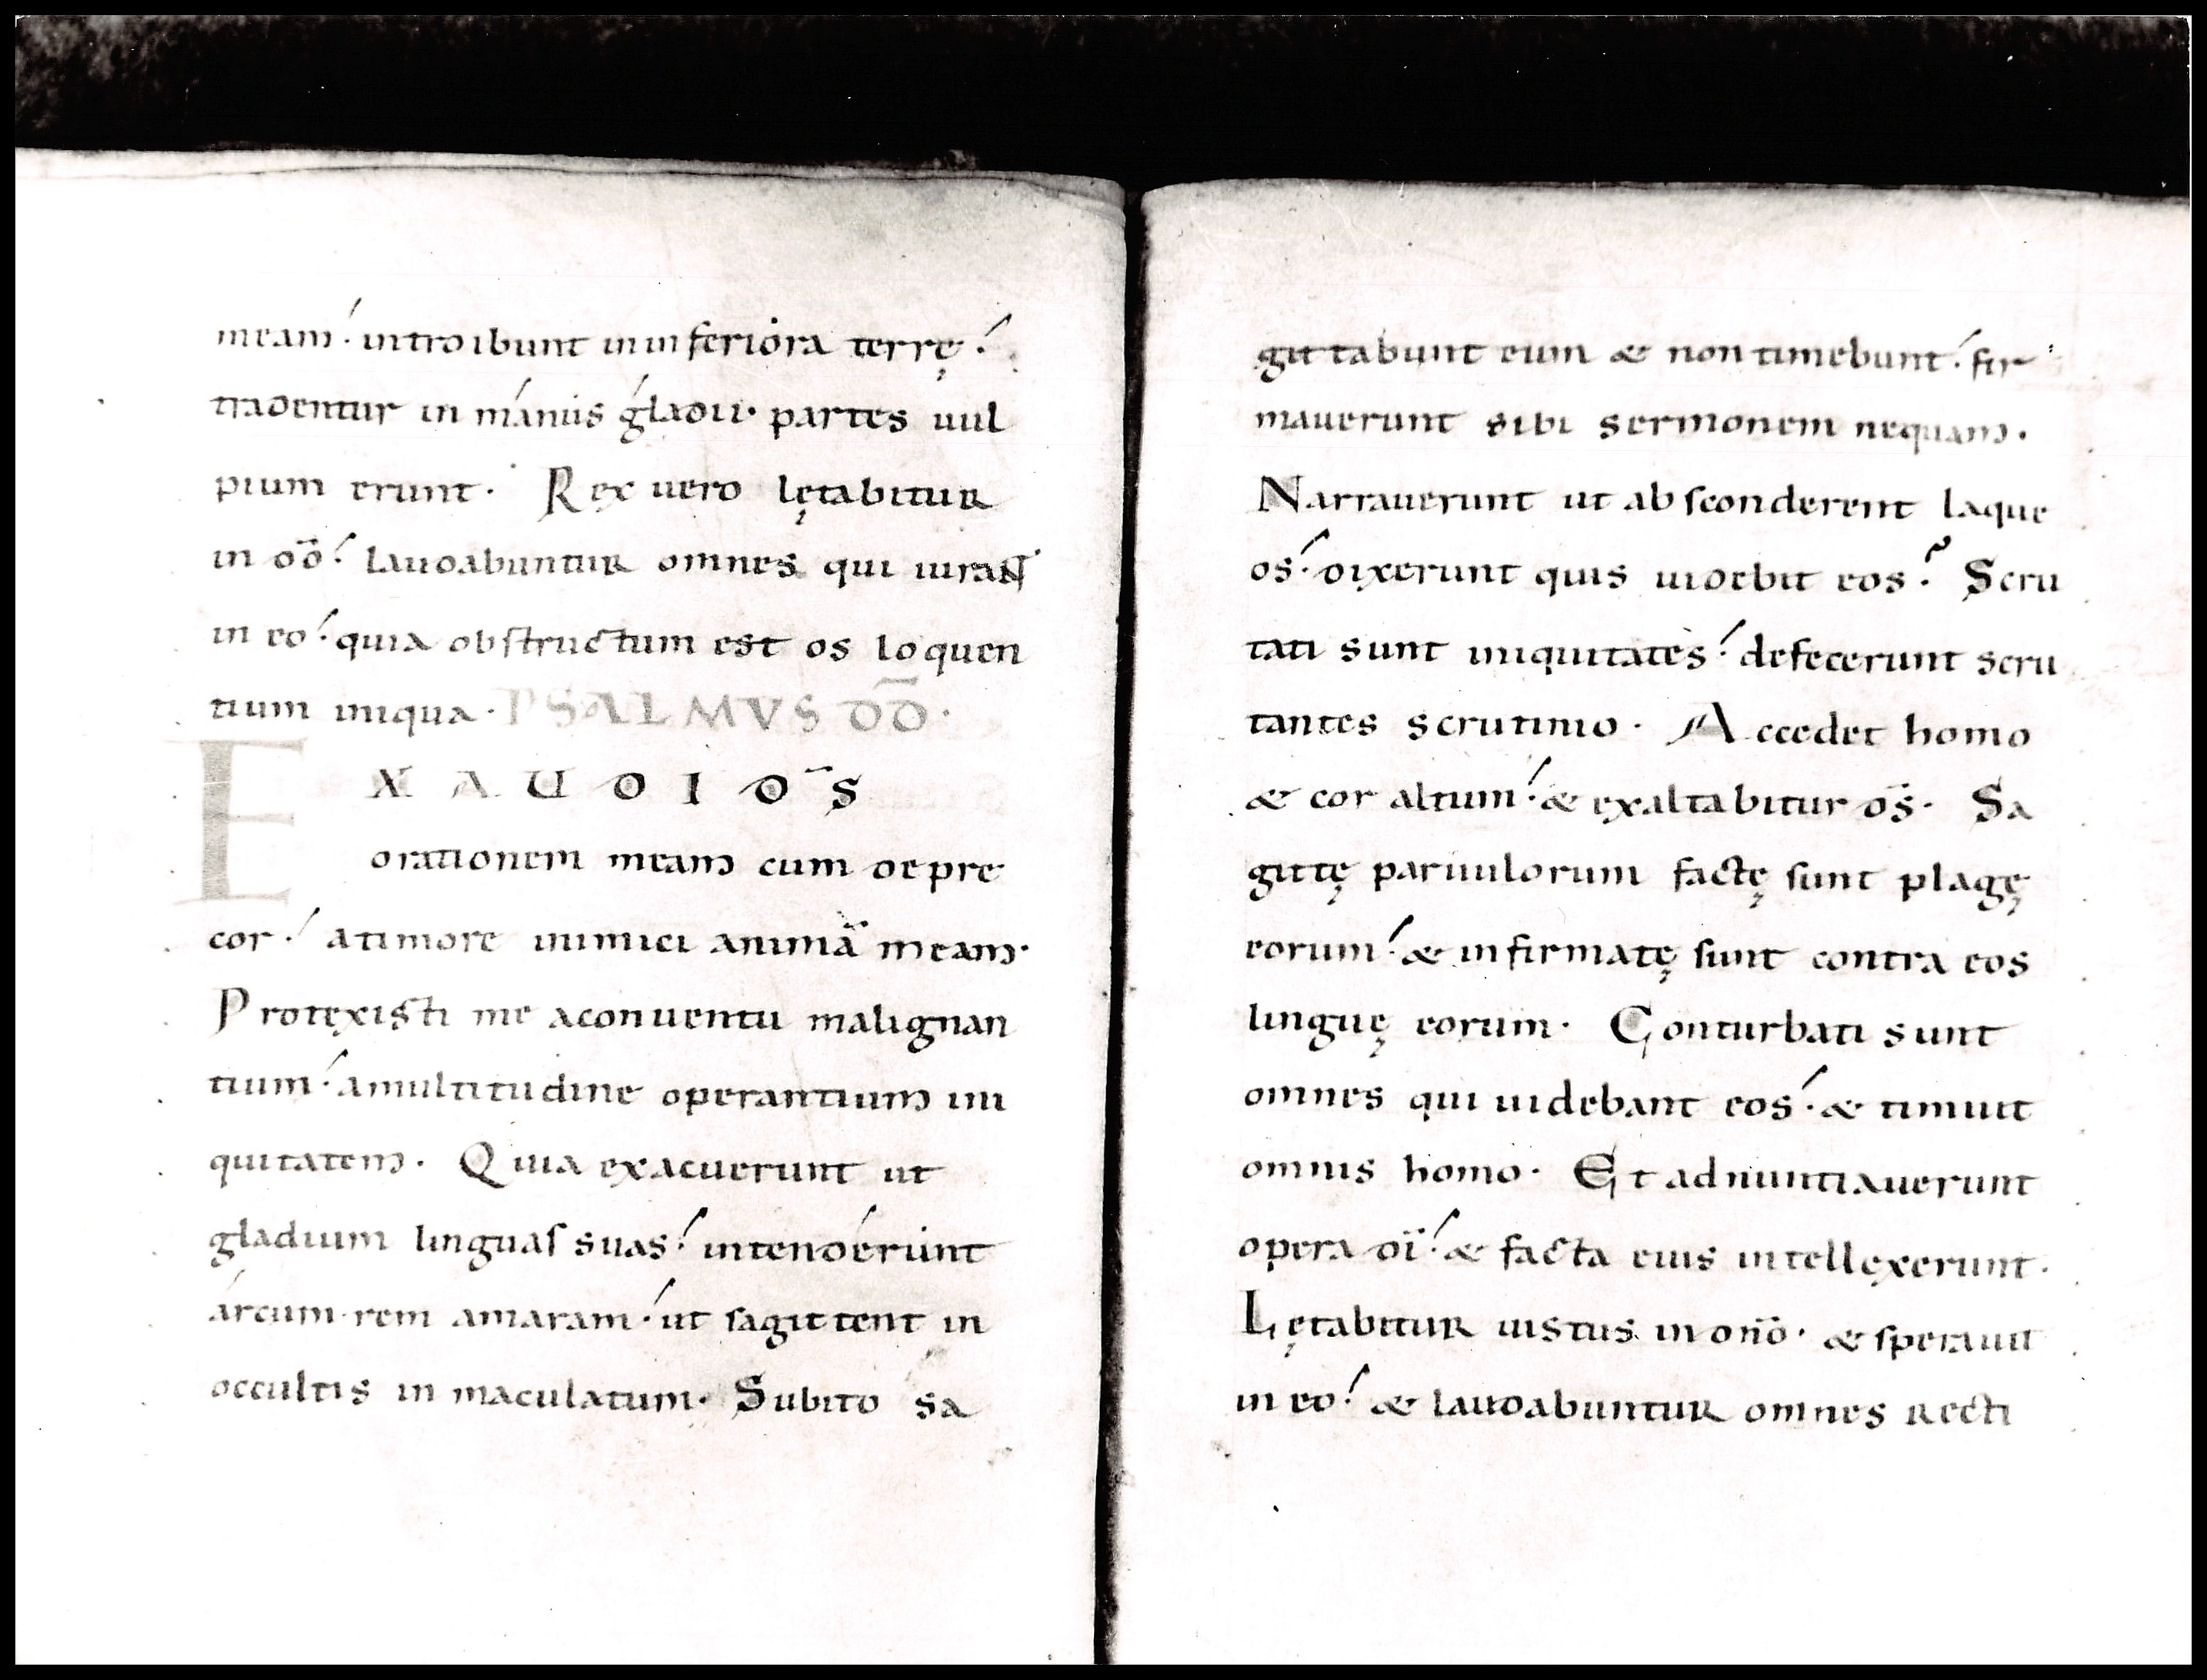 meam· introibunt in inferiora terrę·
tradentur in manus gladii· partes uul
pium erunt· Rex uero lętabitur
in dō· laudabuntur omnes qui iurant
in eo· quia obstructum est os loquen
tium iniqua· PSALMVS DD̄·
EXAUDI D̄S
orationem meam cum depre
cor· a timore inimici animā meam·
Protexisti me a conuentu malignan
tium· a multitudine operantium ini
quitatem· Quia exacuerunt ut
gladium linguas suas· intenderunt
arcum· rem amaram· ut sagittent in
occultis inmaculatum· Subito sa
gittabunt eum & non timebunt· fir
mauerunt sibi sermonem nequam·
Narrauerunt ut absconderent laque
os· dixerunt quis uidebit eos? Scru
tati sunt iniquitates· defecerunt scru
tantes scrutinio· Accedet homo
& cor altum· & exaltabitur d̄s· Sa
gittę paruulorum factę sunt plagę
eorum· & infirmatę sunt contra eos
linguę eorum· Conturbati sunt
omnes qui uidebant eos· & timuit
omnis homo· Et adnuntiauerunt
opera dī· & facta eius intellexerunt·
Lętabitur iustus in dnō· & sperauit
in eo· & laudabuntur omnes recti